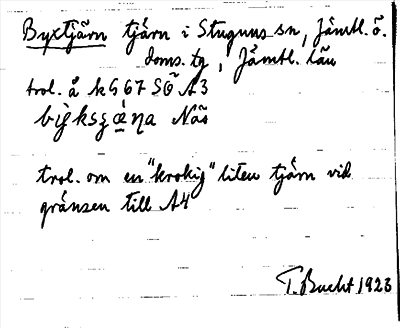 Byxtjärn tjärn i Stuguns sn, Jämtl. ö.
doms. tg, Jämtl. län
trol. å kG 67 SÖ A3
trol. om en "krokig" liten tjärn vid
gränsen till A4
T. Bucht 1923